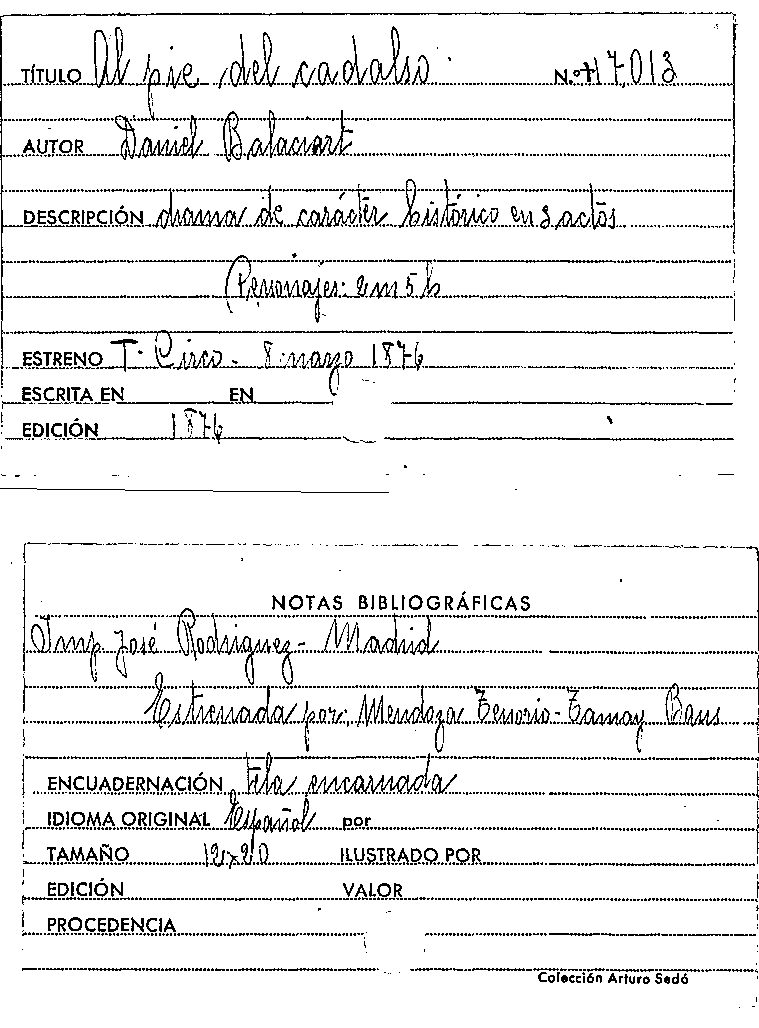 TÍTULO Al pie del cadalso N.º 17,013
AUTOR Daniel Balaciart
DESCRIPCIÓN drama de carácter histórico en 3 actos
Personajes: 2 m 5 h
ESTRENO T. Circo - 8 marzo 1876
ESCRITA EN EN
EDICIÓN 1876
NOTAS BIBLIOGRÁFICAS
Imp. José Rodriguez - Madrid
Estrenada por: Mendoza Tenorio - Tamay Baus
ENCUADERNACIÓN tela encarnada
IDIOMA ORIGINAL Español por
TAMAÑO 12x20 ILUSTRADO POR
EDICIÓN VALOR
PROCEDENCIA
Colección Arturo Sedó